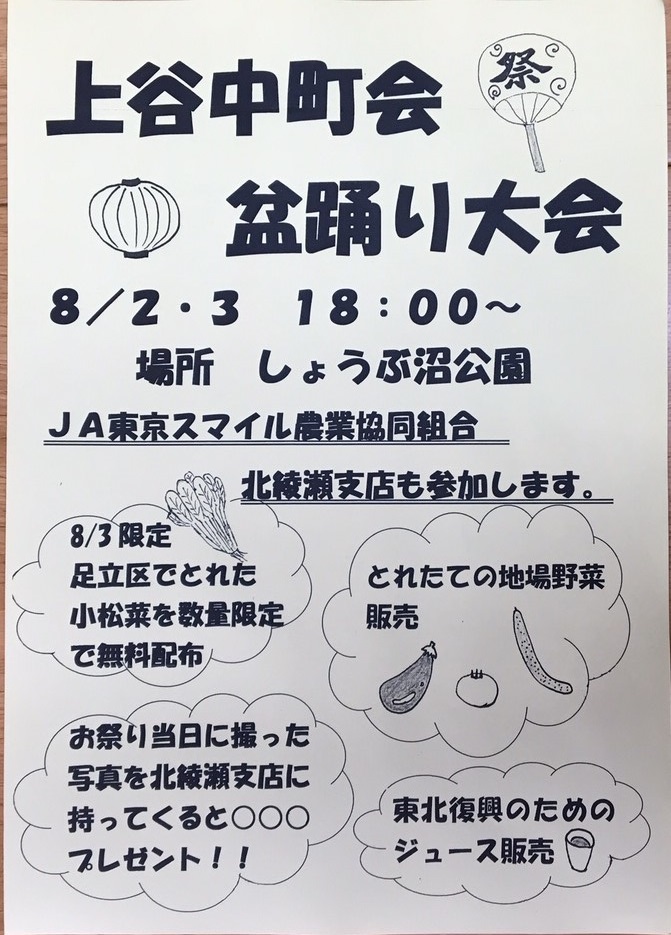 祭
上谷中町会
盆踊り大会
8／2・3　18：00～
場所　しょうぶ沼公園
ＪＡ東京スマイル農業協同組合
北綾瀬支店も参加します。
8/3限定
足立区でとれた
小松菜を数量限定
で無料配布
とれたての地場野菜
販売
お祭り当日に撮った
写真を北綾瀬支店に
持ってくると○○○
プレゼント！！
東北復興のための
ジュース販売